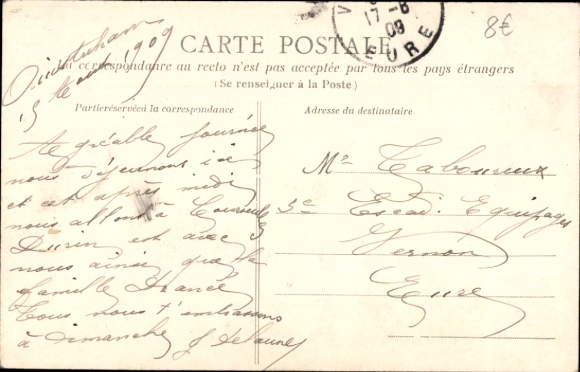 Ouistreham
15 Aout 1909
17-8
09
EURE
8€
CARTE POSTALE
La correspondance au recto n'est pas acceptée par tous les pays étrangers
(Se renseigner à la Poste)
Partie réservée à la correspondance
Adresse du destinataire
Agréable journée
nous déjeunons ici
et cet après midi
nous allons à Courseulles
Durin est avec
nous ainsi que la
famille
Tous nous t'embrassons
à dimanche J Delaunay
Mr Taboureux
3e Escad. Equipages
Vernon
Eure